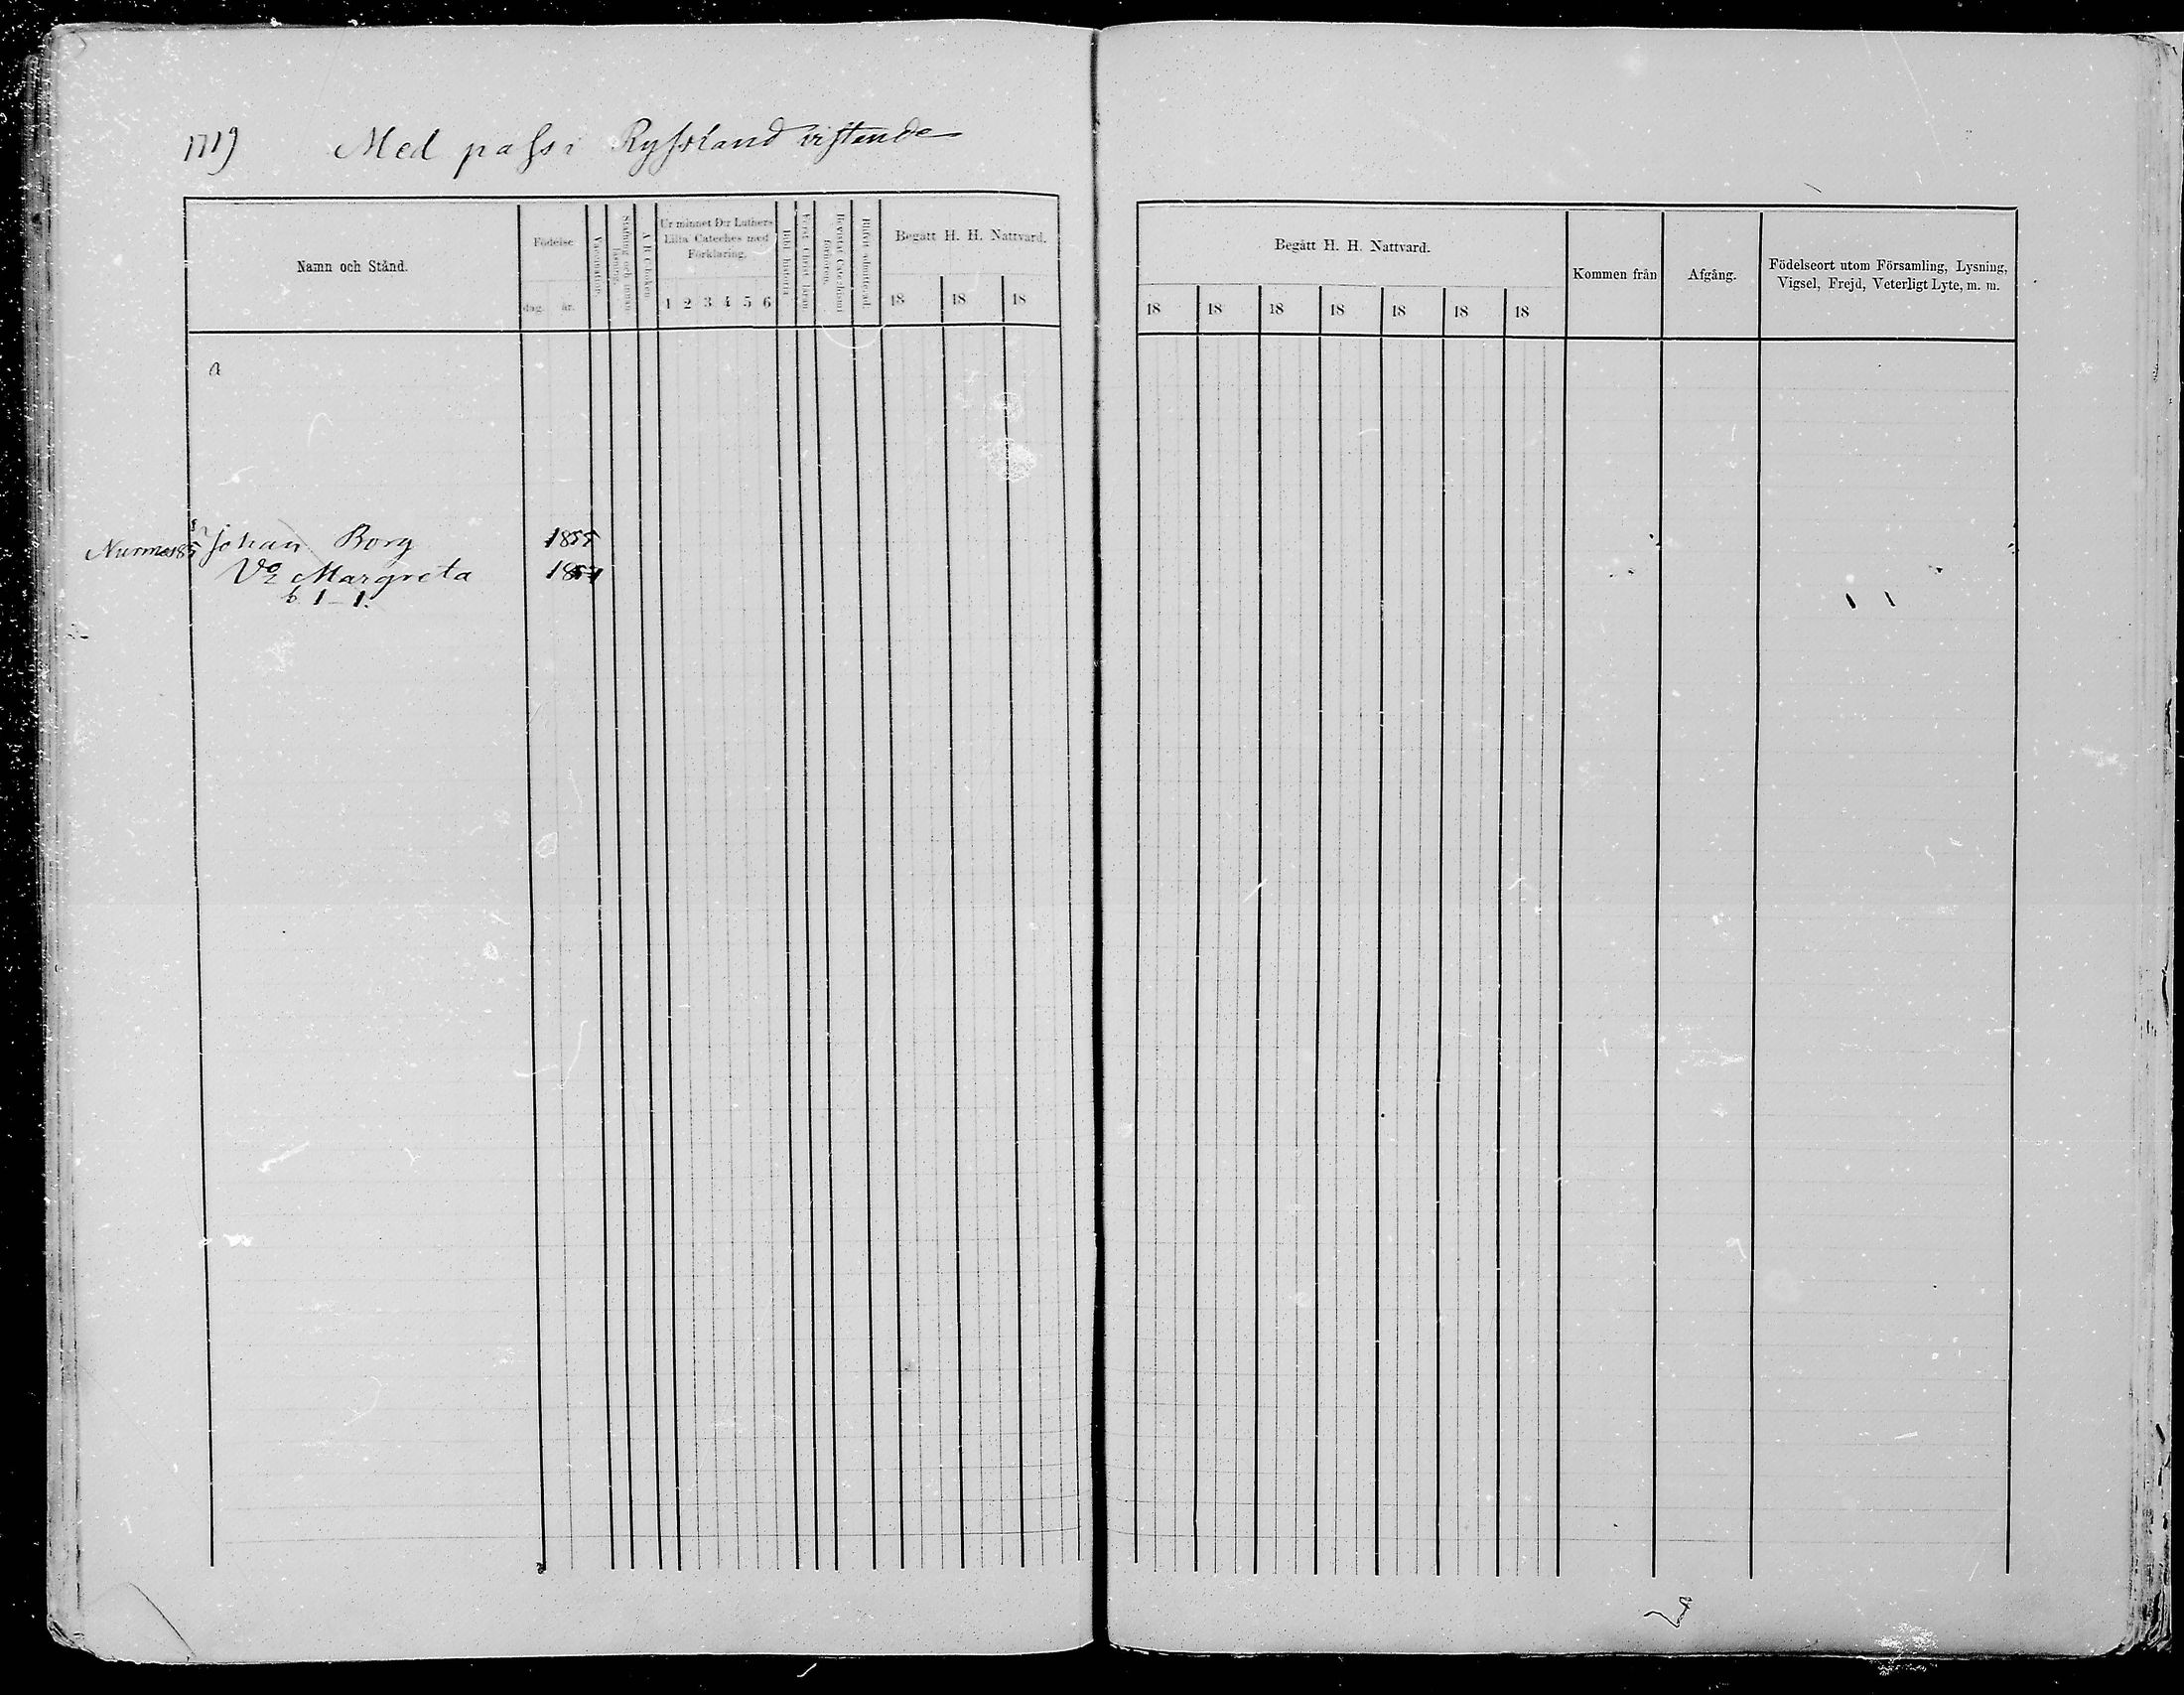 1719 Med pass i Ryssland vistende
Namn och Stånd.
Födelse
dag. år.
Vaccination.
Stafning och innan läsning.
A B C boken
Ur minnet D:r Luthers
Lilla Cateches med
Förklaring.
1 2 3 4 5 6
Bibl. historia
Begått H. H. Nattvard.
18 18 18
Begått H. H. Nattvard.
18 18 18 18 18 18 18
Kommen från
Afgång.
Födelseort utom Församling, Lysning,
Vigsel, Frejd, Veterligt Lyte, m. m.
Nurmes 85 Johan Borg 1855
Margreta
b. 1–1.